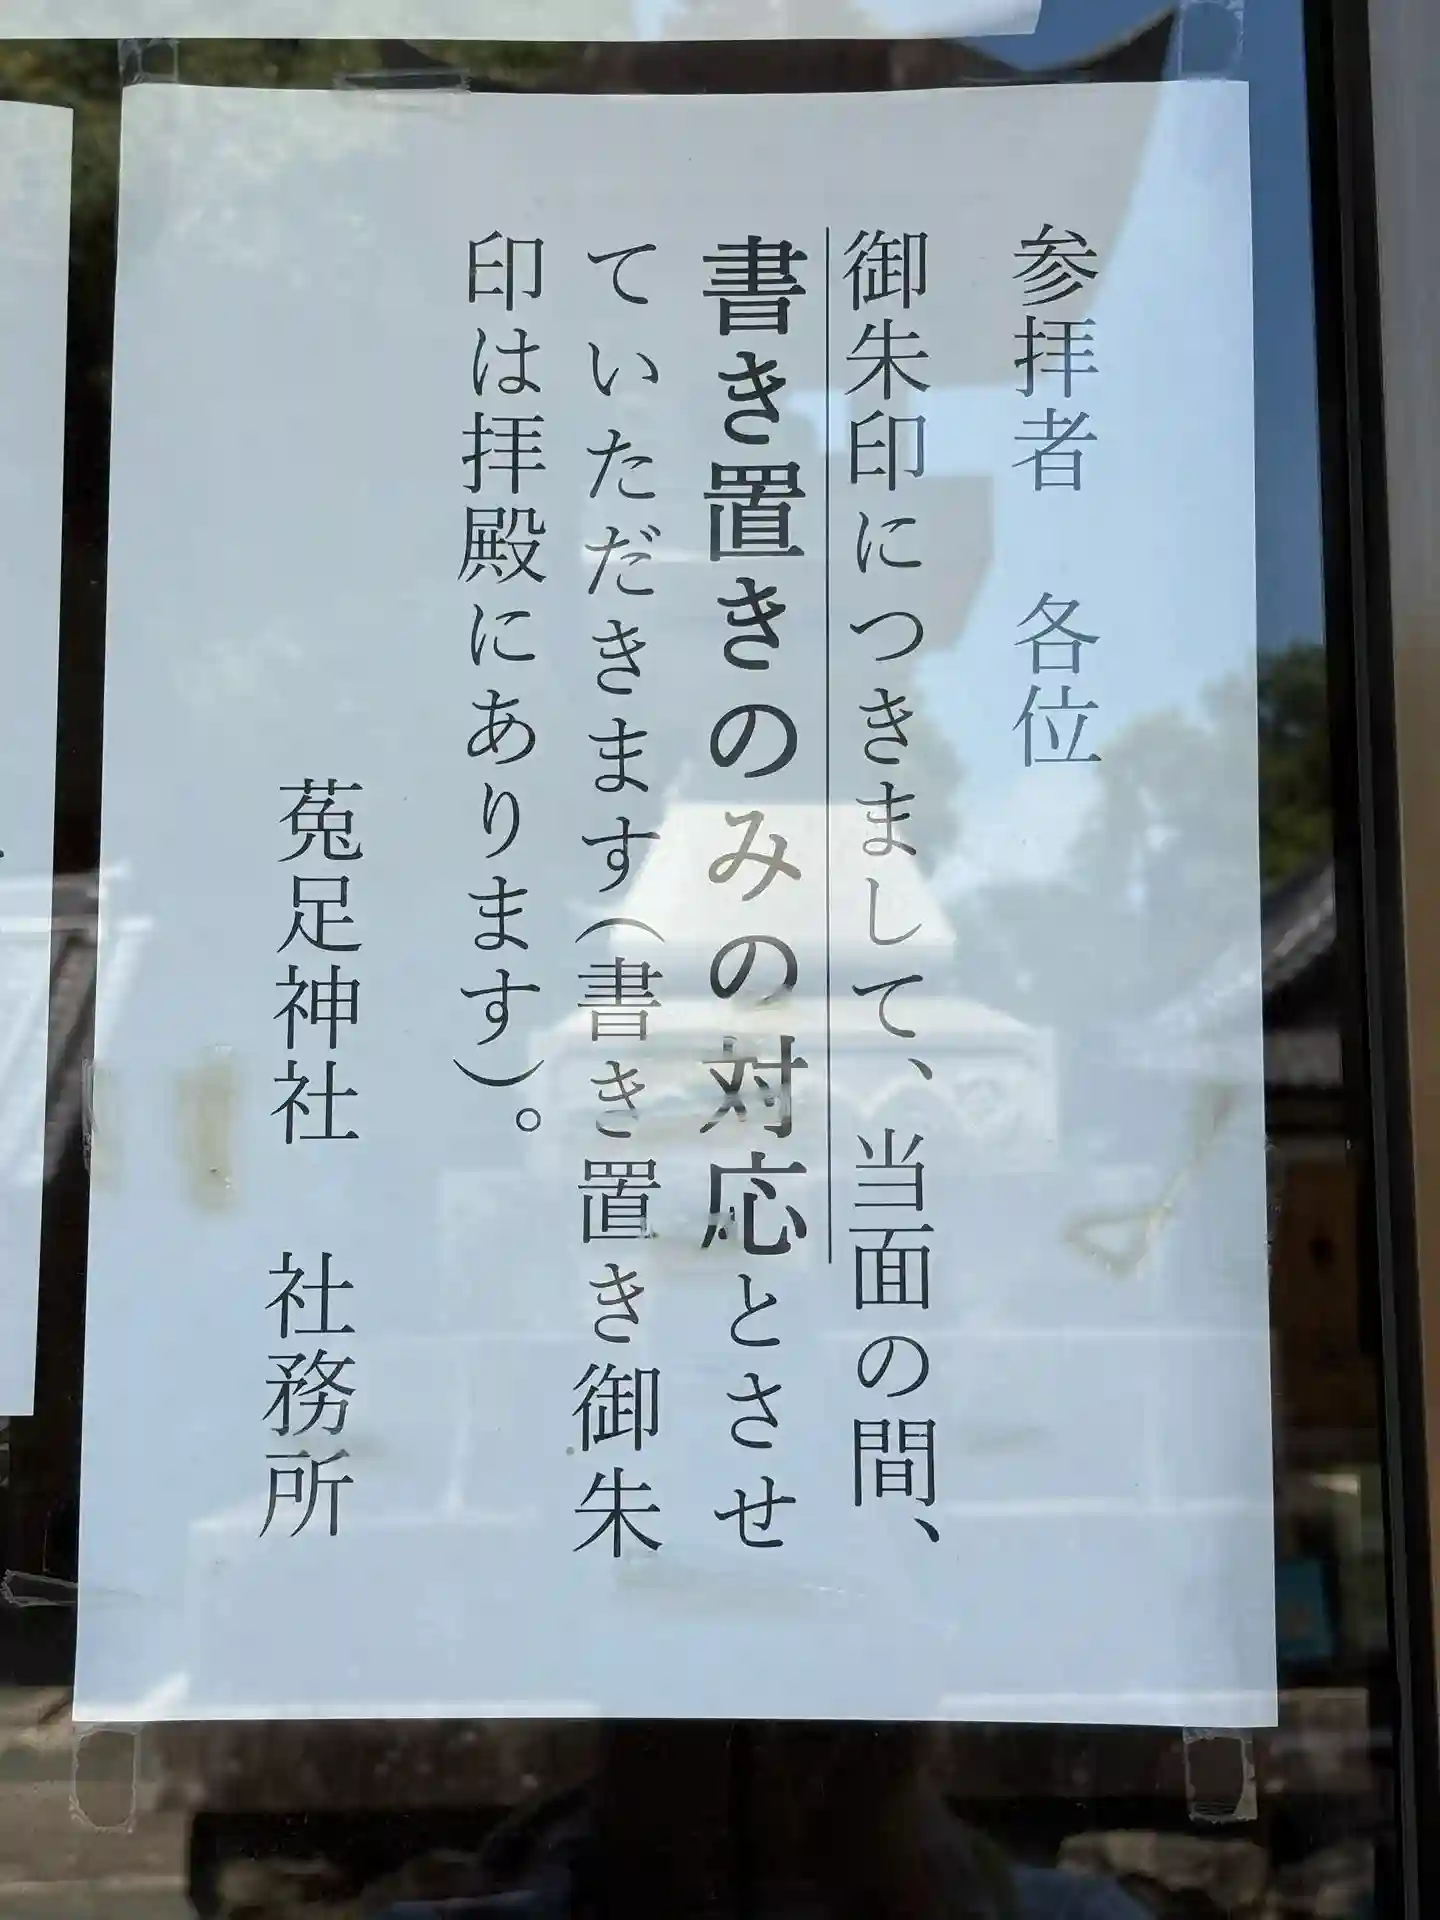 参拝者　各位
御朱印につきまして、当面の間、
書き置きのみの対応とさせ
ていただきます（書き置き御朱
印は拝殿にあります）。
菟足神社　社務所